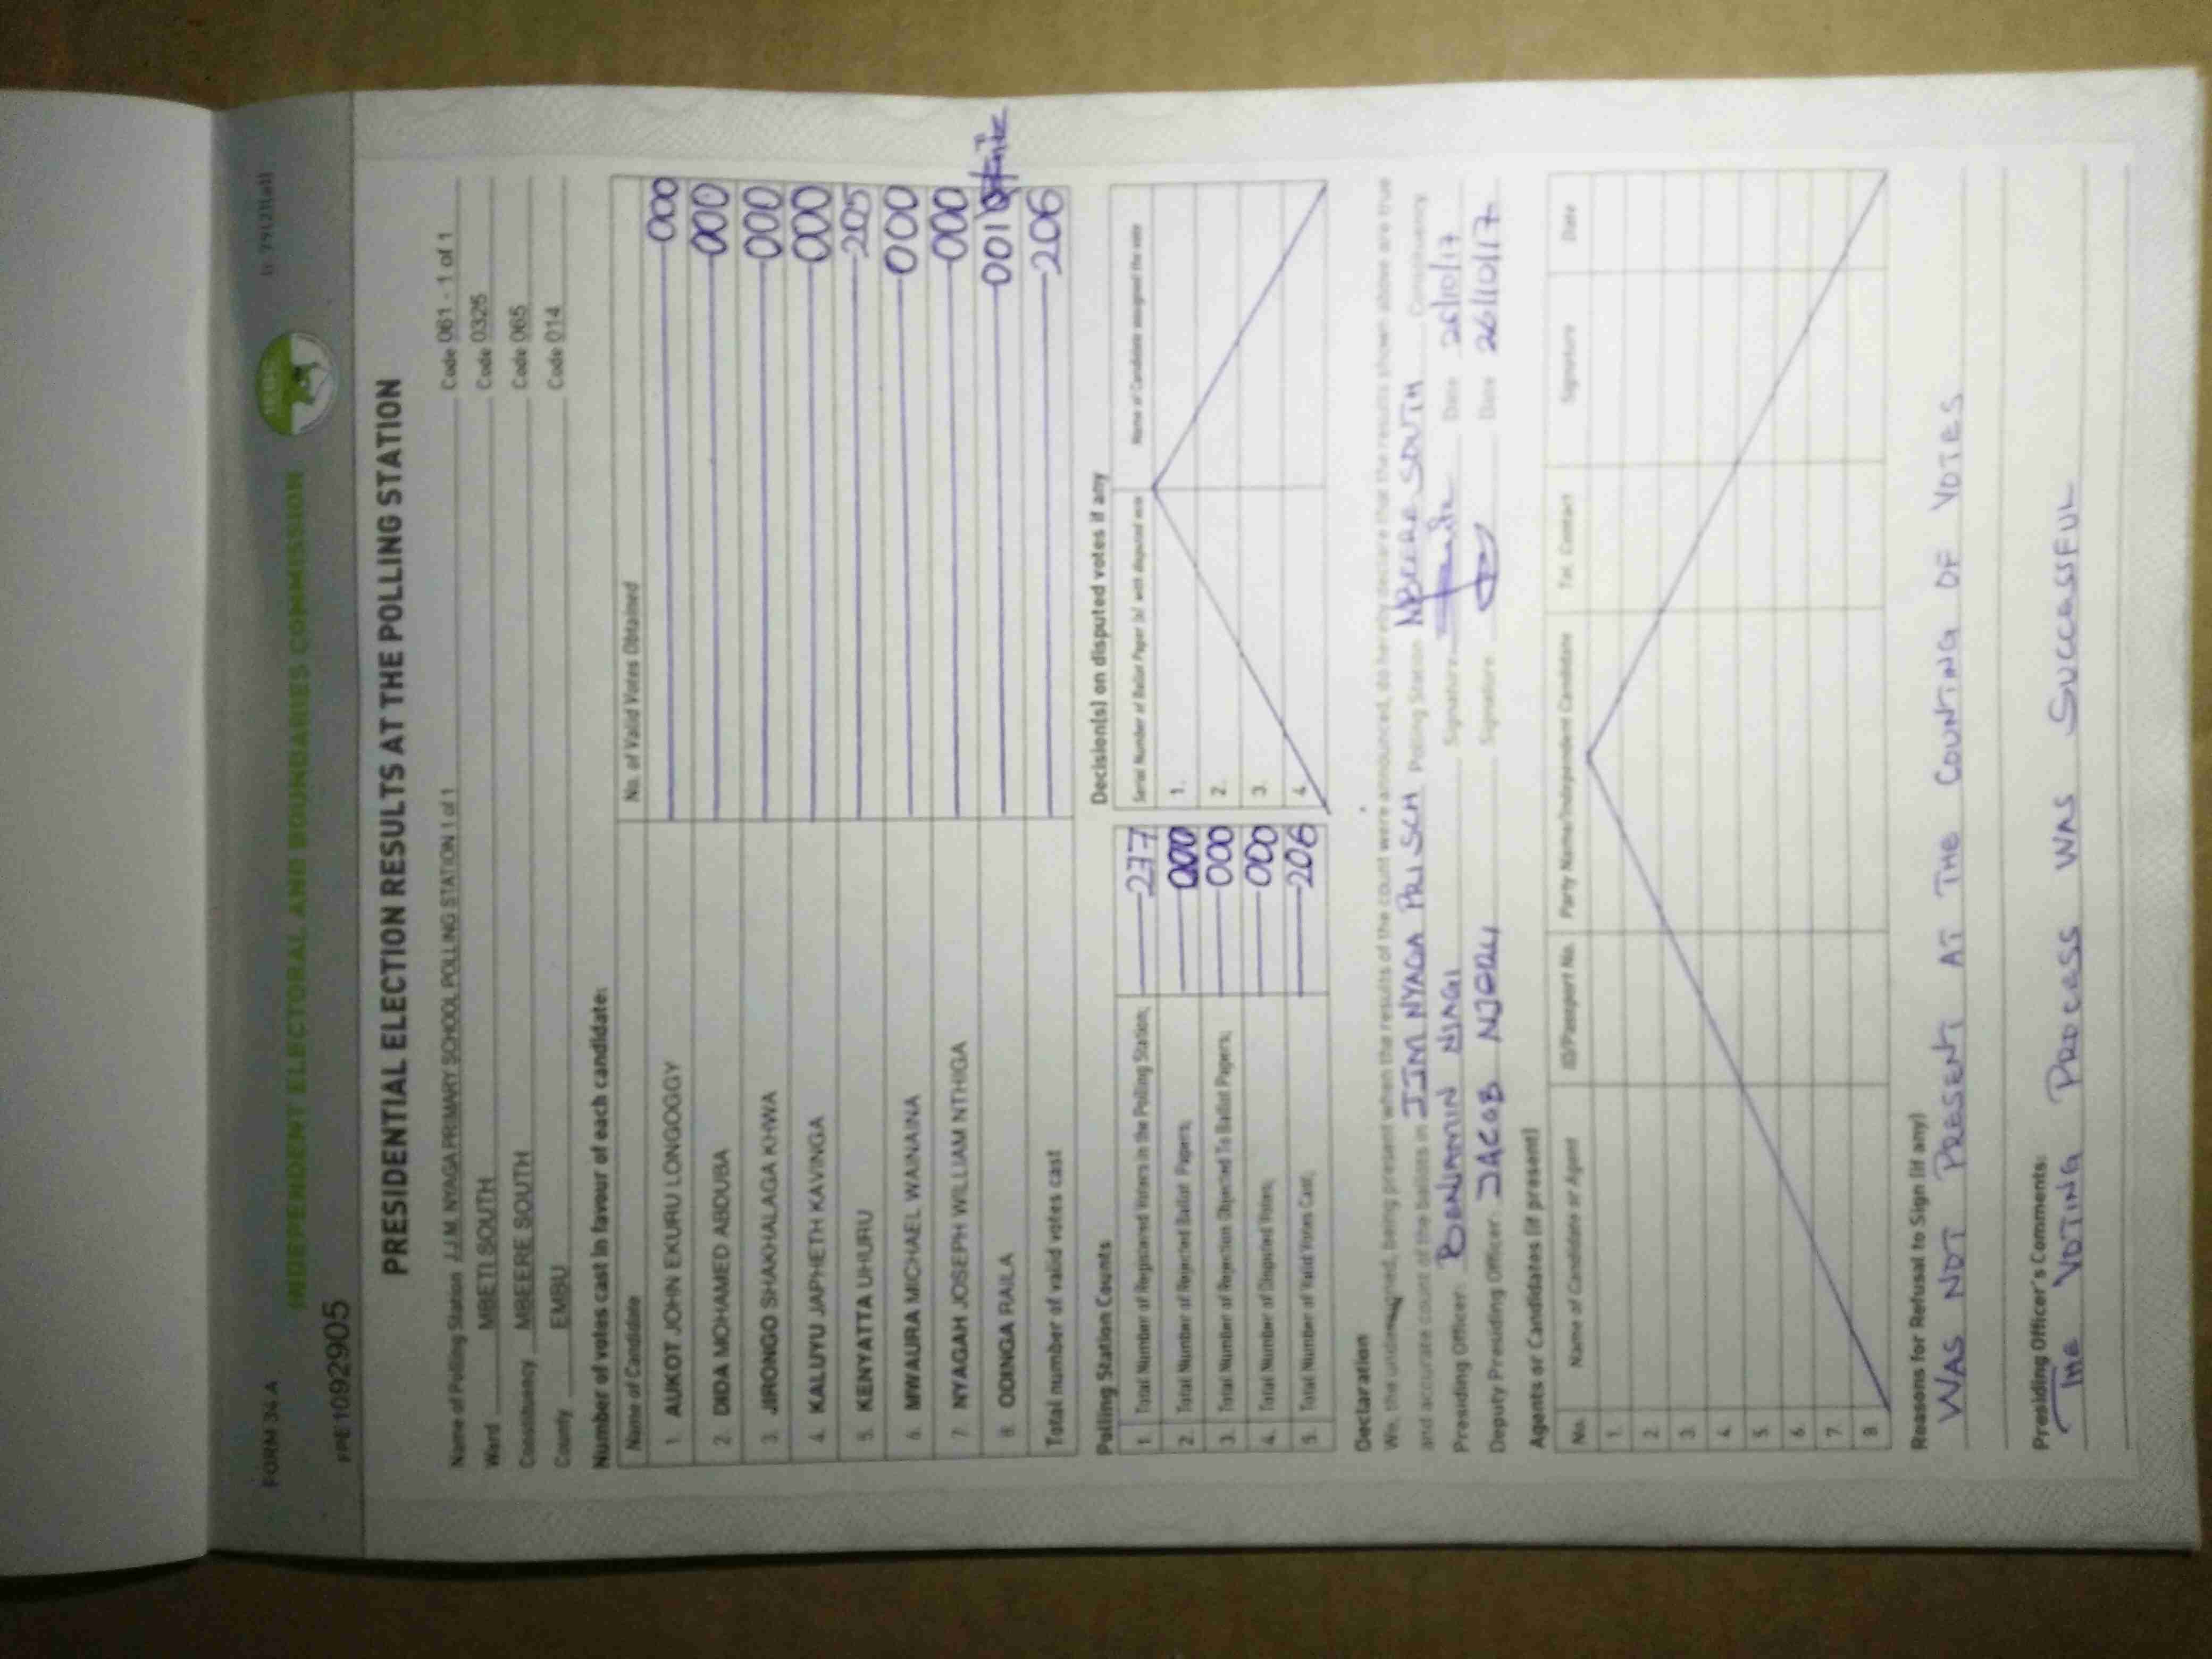 FORM 34A
INDEPENDENT ELECTORAL AND BOUNDARIES COMMISSION
IEBC
#PE1092905
PRESIDENTIAL ELECTION RESULTS AT THE POLLING STATION
Name of Polling Station J.J.M. NYAGA PRIMARY SCHOOL POLLING STATION 1 of 1 Code 061 - 1 of 1
Ward MBETI SOUTH Code 0325
Constituency MBEERE SOUTH Code 065
County EMBU Code 014
Number of votes cast in favour of each candidate:
Name of Candidate No. of Valid Votes Obtained
1. AUKOT JOHN EKURU LONGOGGY 000
2. DIDA MOHAMED ABDUBA 000
3. JIRONGO SHAKHALAGA KHWA 000
4. KALUYU JAPHETH KAVINGA 000
5. KENYATTA UHURU 205
6. MWAURA MICHAEL WAINAINA 000
7. NYAGAH JOSEPH WILLIAM NTHIGA 000
8. ODINGA RAILA 001
Total number of valid votes cast 206
Polling Station Counts
1. Total Number of Registered Voters in the Polling Station; 237
2. Total Number of Rejected Ballot Papers; 000
3. Total Number of Rejection Objected To Ballot Papers; 000
4. Total Number of Disputed Votes; 000
5. Total Number of Valid Votes Cast; 206
Decision(s) on disputed votes if any
Serial Number of Ballot Paper (s) with disputed vote Name of Candidate assigned the vote
1.
2.
3.
4.
Declaration
We, the undersigned, being present when the results of the count were announced, do hereby declare that the results shown above are true
and accurate count of the ballots in JJM NYAGA PRI SCH Polling Station MBEERE SOUTH Constituency
Presiding Officer: BENJAMIN NJAGI Signature: Date 26/10/17
Deputy Presiding Officer: JACOB NJERU Signature: Date 26/10/17
Agents or Candidates (if present)
No. Name of Candidate or Agent ID/Passport No. Party Name/Independent Candidate Tel. Contact Signature Date
1.
2.
3.
4.
5.
6.
7.
8.
Reasons for Refusal to Sign (if any)
WAS NOT PRESENT AT THE COUNTING OF VOTES
Presiding Officer's Comments:
THE VOTING PROCESS WAS SUCCASSFUL